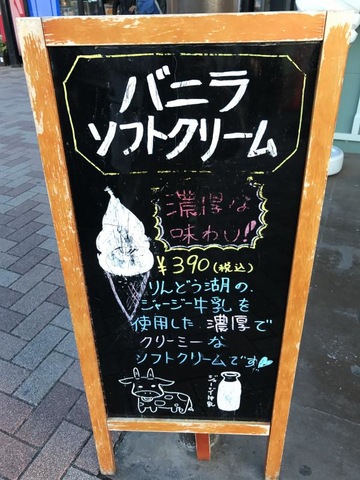 バニラ
ソフトクリーム
濃厚な
味わい!!
¥390(税込)
りんどう湖の
ジャージー牛乳を
使用した濃厚で
クリーミーな
ソフトクリームです
ジャージー牛乳